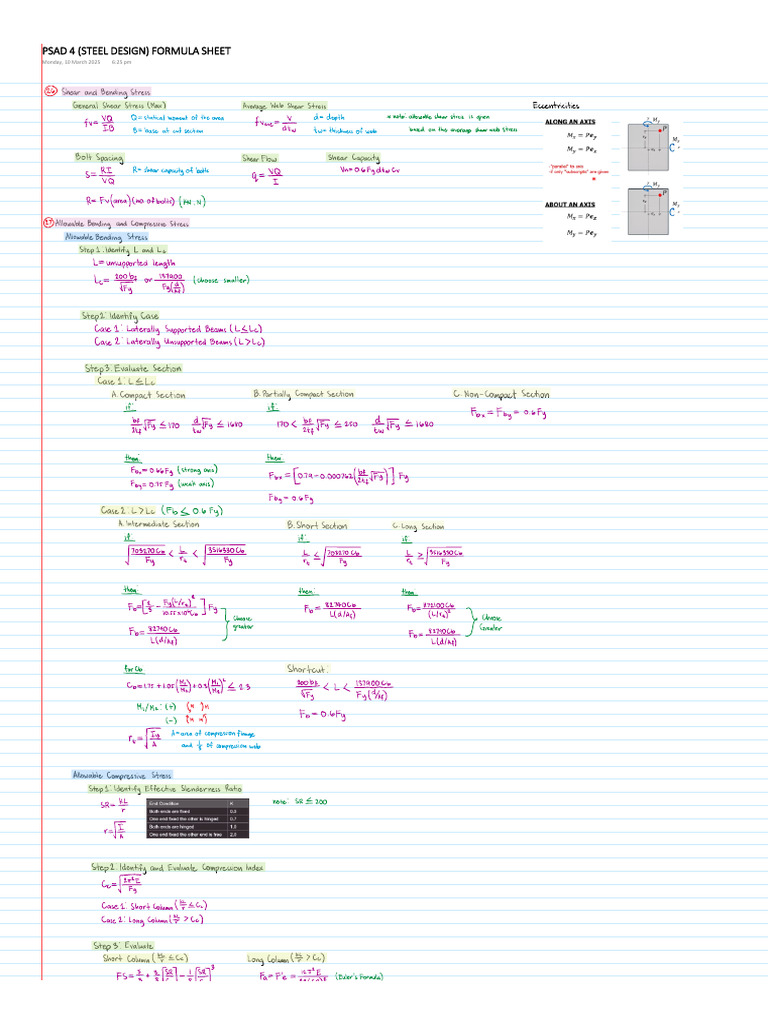 PSAD 4 (STEEL DESIGN) FORMULA SHEET
Monday, 10 March 2025 6:25 pm
Shear and Bending Stress
General Shear Stress (Max)
fv = VQ/IB
Q = statical moment of the area
B = base at cut section
Average Web Shear Stress
fvave = V/dtw
d = depth
tw = thickness of web
* note: allowable shear stress is given
based on this average shear web stress
Eccentricities
ALONG AN AXIS
Mx = Pex
My = Pey
*"parallel" to axis
-if only "subscripts" are given
ABOUT AN AXIS
Mx = Pex
My = Pey
Bolt Spacing
S = RI/VQ
R = shear capacity of bolts
R = Fv (area)(no. of bolts) (kN, N)
Shear Flow
q = VQ/I
Shear Capacity
Vn = 0.6Fy dtw Cv
Allowable Bending and Compressive Stress
Allowable Bending Stress
Step 1: Identify L and Lc
L = unsupported length
Lc = 200bf/√Fy or 137900/Fy(d/Af) (choose smaller)
Step 2: Identify Case
Case 1: Laterally Supported Beams (L ≤ Lc)
Case 2: Laterally Unsupported Beams (L > Lc)
Step 3: Evaluate Section
Case 1: L ≤ Lc
A. Compact Section
if:
bf/2tf √Fy ≤ 170 d/tw √Fy ≤ 1680
then:
Fbx = 0.66Fy (strong axis)
Fby = 0.75Fy (weak axis)
B. Partially Compact Section
if:
170 < bf/2tf √Fy ≤ 250 d/tw √Fy ≤ 1680
then:
Fbx = [0.79 - 0.000762(bf/2tf √Fy)] Fy
Fby = 0.6Fy
C. Non-Compact Section
Fbx = Fby = 0.6Fy
Case 2: L > Lc (Fb ≤ 0.6Fy)
A. Intermediate Section
if:
√703270Cb/Fy < L/rt < √3516330Cb/Fy
then:
Fb = [2/3 - Fy(L/rt)²/10.55x10⁶Cb] Fy
Fb = 82740Cb/L(d/Af)
choose
greater
B. Short Section
if:
L/rt ≤ √703270Cb/Fy
then:
Fb = 82740Cb/L(d/Af)
C. Long Section
if:
L/rt ≥ √3516330Cb/Fy
then:
Fb = 1172100Cb/(L/rt)²
Fb = 82740Cb/L(d/Af)
choose
Greater
for Cb
Cb = 1.75 + 1.05(M1/M2) + 0.3(M1/M2)² ≤ 2.3
M1/M2: (+)
(-)
rt = √Iy/A
A = area of compression flange
and 1/3 of compression web
Shortcut:
200bf/√Fy < L < 137900Cb/Fy(d/Af)
Fb = 0.6Fy
Allowable Compressive Stress
Step 1: Identify Effective Slenderness Ratio
SR = KL/r
r = √I/A
End Condition K
Both ends are fixed 0.5
One end fixed the other is hinged 0.7
Both ends are hinged 1.0
One end fixed the other end is free 2.0
note: SR ≤ 200
Step 2: Identify and Evaluate Compression Index
Cc = √2π²E/Fy
Case 1: Short Column (KL/r ≤ Cc)
Case 2: Long Column (KL/r > Cc)
Step 3: Evaluate
Short Column (KL/r ≤ Cc)
Long Column (KL/r > Cc)
(Euler's Formula)